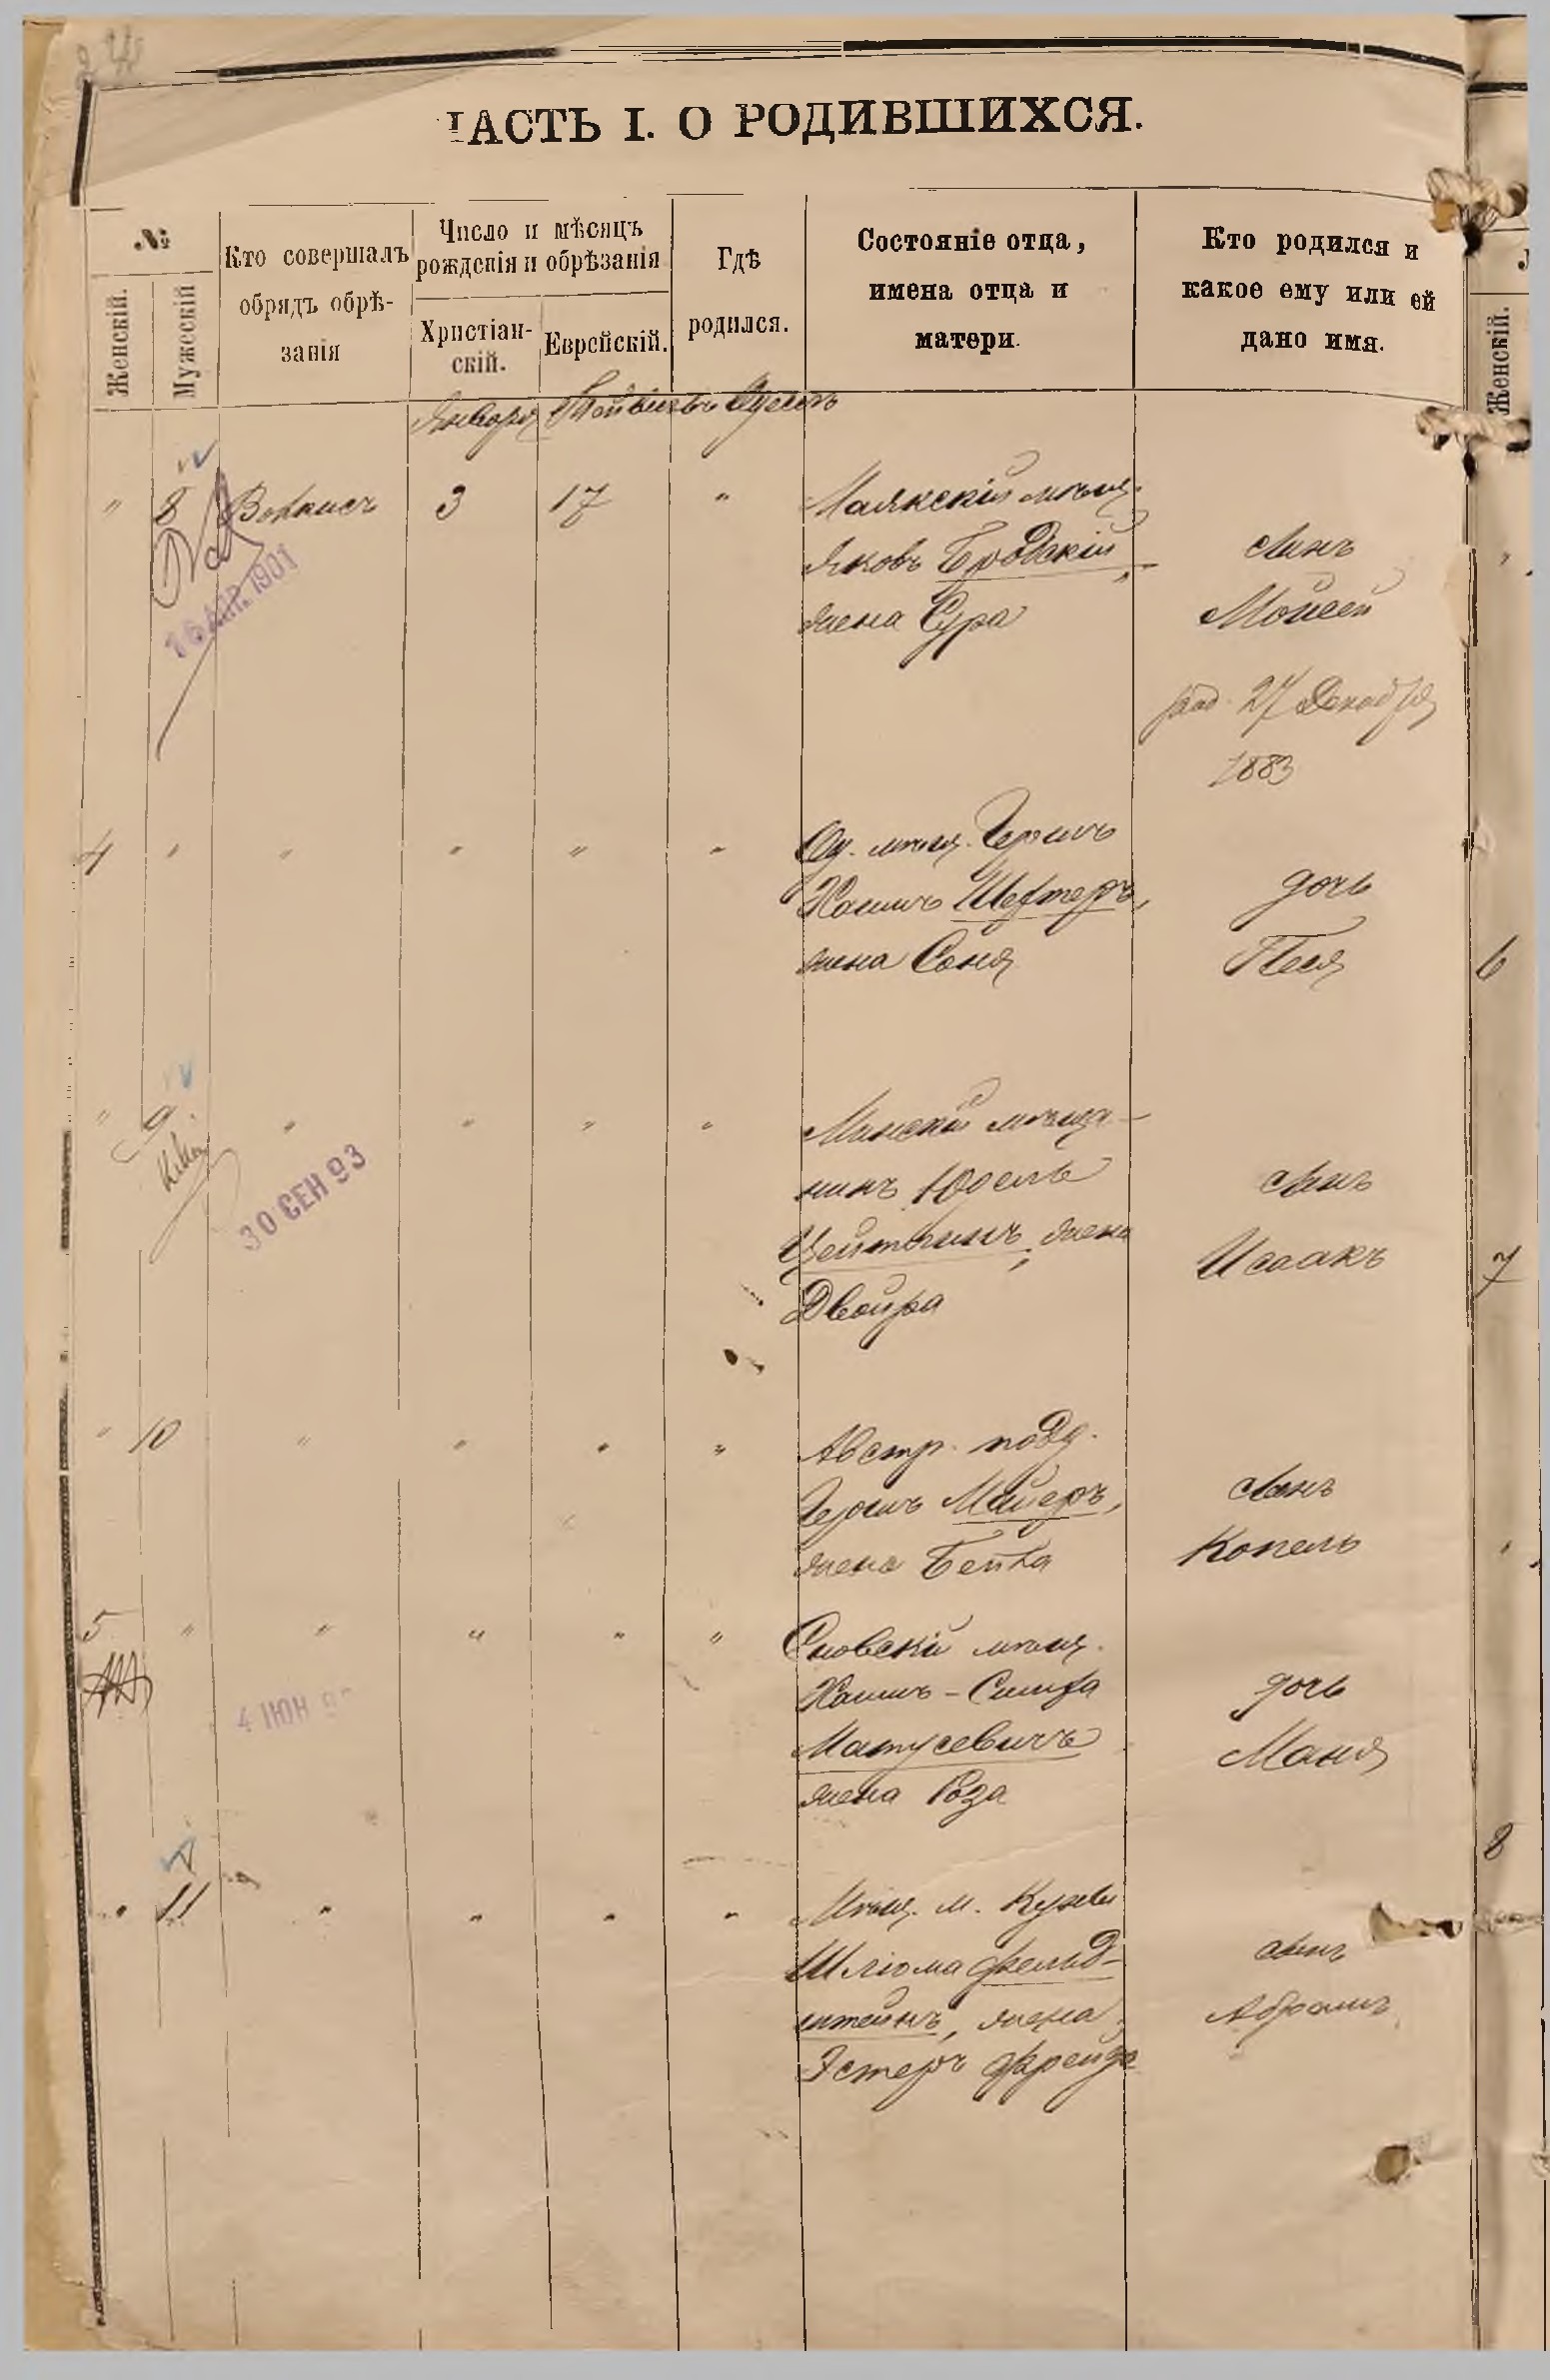 ЧАСТЬ I. О РОДИВШИХСЯ.
№
Женскій.
Мужескій
Кто совершалъ
обрядъ обрѣ-
занія
Число и мѣсяцъ
рожденія и обрѣзанія
Христіан-
скій.
Еврейскій.
Гдѣ
родился.
Состояніе отца,
имена отца и
матери.
Кто родился и
какое ему или ей
дано имя.
Января Тейвіесъ Одесса
" 8 3 17 " Маякскій мѣщ.
Яковъ Бродскій,
жена Сура
сынъ
Мойсей
род. 27 Декабря
1883
16 АПР. 1901
4 " " " " " Од. мѣщ. Гершъ
Хаимъ Шехтеръ,
жена Соня
дочь
Песя
" 9 " " " " Минскій мѣща-
нинъ Юдель
Цейтлинъ, жена
Двойра
сынъ
Исаакъ
30 СЕН 93
" 10 " " " " Австр. подд.
Гершъ Майеръ,
жена Бейла
сынъ
Копель
5 " " " " " мѣщ.
Хаимъ-Симха
Матусевичъ
жена Роза
дочь
Маня
4 ІЮН
" 11 " " " " Мѣщ. м.
Шліома Фельд-
штейнъ, жена
Эстеръ Фрейда
сынъ
Абрамъ
Женскій.
6
7
8